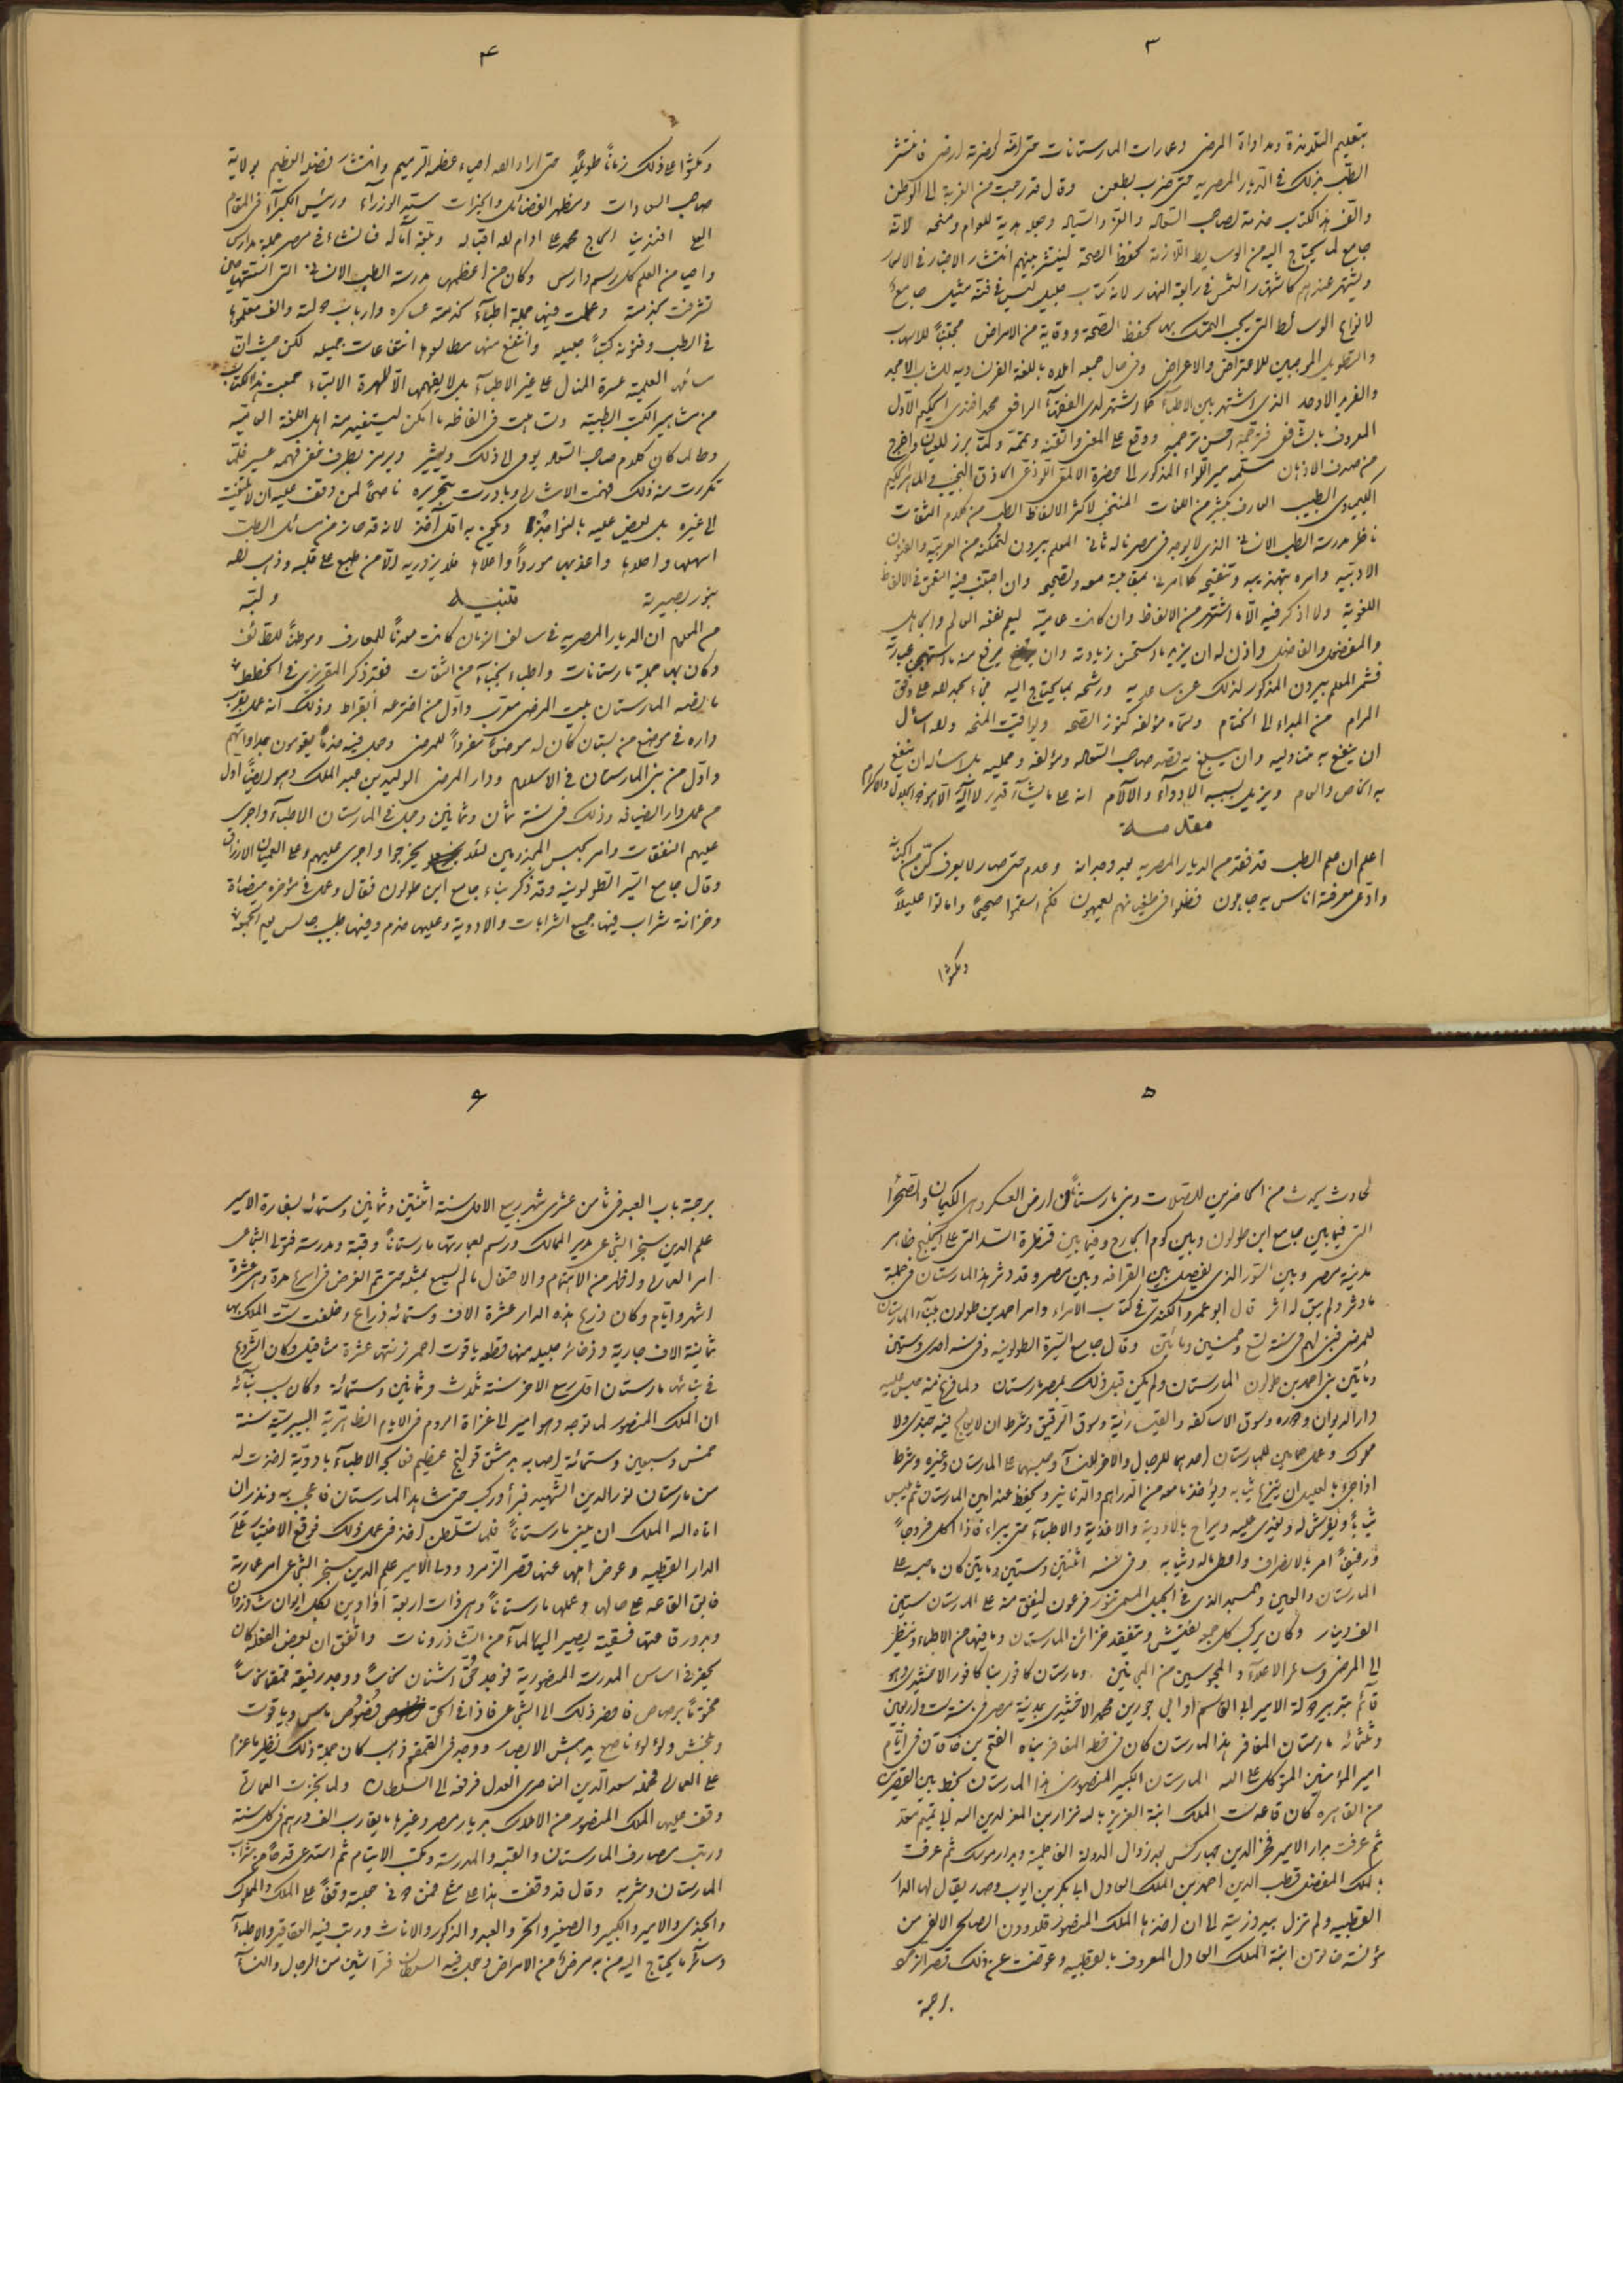 ٣
بتعليم التلامذة ومداواة المرضى وعمارات المارستانات حتى
الطب بذلك في الديار المصرية حتى ضرب بطعن وقال قد رجعت من الغربة الى الوطن
والف هذا الكتاب خدمة لصاحب السعاده والعز والسياده وجعله هدية للعوام ومنحه لانه
جامع لما يحتاج اليه من الوسايط اللازمة لحفظ الصحة لينتشر بينهم انتشار الاخبار في الامصار
ويشتهر عندهم كاشتهار الشمس في رابعة النهار لانه كتاب جليل ليس في فنه مثيل جامع
لانواع الوسائط التي يجب التمسك بها لحفظ الصحة ووقاية من الامراض مجتنباً للاسهاب
والتطويل الموجبين للاعتراض والاعراض وفي حال جمعه املاه باللغة الفرنساويه للشاب الامجد
والفريد الاوحد الذي اشتهر بين الاطباء كما اشتهر لدى الفضلاء الرافعي محمد افندي الحكيم الاول
المعروف بالشافعى فترجمه احسن ترجمه ووقع على المعنى واتقنه وتممه ولما برز للعيان واخرج
من صدف الاذهان سلمه مير اللواء المذكور الى حضرة الالمعي اللوذعي الحاذق النجيب الماهر الحكيم
الكيماوي الطبيب العارف بكثير من اللغات المنتخب لاكثر الالفاظ الطب من كلام الثقات
ناظر مدرسة الطب الانساني الذي لا يوجد في مصر ناله ثاني المعلم بيرون لتمكنه من العربية والفنون
الادبيه وامره بتهذيبه وتنقيحه كما امرني بمقابلته معه وتصحيحه وان اجتنب فيه التعمق في الالفاظ
اللغوية ولا اذكر فيه الا ما اشتهر من الالفاظ وان كانت عامية ليعم نفعه العالم والجاهل
والمفضول والفاضل واذن له ان يزيد ما استحسن زيادته وان يرفع منه ما استهجن عبارته
فشمر المعلم بيرون المذكور لذلك عن ساعديه ورشحه بما يحتاج اليه فجاء بحمد لله على وفق
المرام من المبداء الى الختام وسماه مؤلفه كنوز الصحه ويواقيت المنحه والله اسأل
ان ينفع به متناوليه وان يبلغ به قصد صاحب السعاده ومؤلفه وعمليه بل اسئاله ان ينفع
به الخاص والعام ويزيل بسببه الادواء والآلام انه على ما يشاء قدير لا اله الا هو ذو الجلال والاكرام
مقدمة
اعلم ان علم الطب قد فقد من الديار المصريه بعد وجدانه وعدم حتى صار لا يعرف
وادعى معرفته اناس به جاهلون فظلوا في طغيانهم يعمهون فكم اسقموا صحيحاً واماتوا عليلاً
ومكثوا
٤
ومكثوا على ذلك زماناً طويلاً حتى اراد الله احياء عظمه الرميم وانتشار فضله العظيم بولاية
صاحب السعادات ومظهر الفضائل والخيرات سيد الوزراء ورئيس الكبراء في المقام
العلى افندينا الحاج محمد على ادام لله اقباله وبلغه آماله فانشاء في مصر جملة مدارس
واحيا من العلم كل رسم دارس وكان من اعظمهن مدرسة الطب الانساني التي
تشرفت بخدمته وعملت فيها جملة اطباء لخدمة عساكره وارباب دولته والف معلموها
في الطب وفنونه كتباً جليله وانتفع منها مطالعوها انتفاعات جميله لكن حيث ان
سائل العلمية عسرة المنال على غير الاطباء بل لا يفهمها الا المهرة الالباء جمعت هذا الكتاب
من مشاهير الكتب الطبية وتساهلت في الفاظه ما امكن ليستفيد منه اهل اللغة العاميه
وطالما كان كلام صاحب السعاده يومى لى ذلك ويشير ويرمز بطرف خفي فهمه عسير فلما
تكررت منه ذلك فهمت الاشارة وبادرت بتحريره ناصحاً لمن وقف عليه ان لا يلتفت
الى غيره بل يعض عليه بالنواجذ ويكون به اقل آخذ لانه قد حاز من سائل الطب
اسهلها واحلاها واعذبها مورداً واعلاها فلا يزدريه الا من طبع على قلبه وذهب الله
بنور بصيرته
تنبيه
ولبه
من المعلوم ان الديار المصريه في سالف الزمان كانت معدناً للمعارف وموطناً للطائف
وكان بها جملة مارستانات واطباء نجباء من الثقات فقد ذكر المقريزي في الخطط
ما نصه المارستان بيت المرضى معرب واول من اخترعه ابقراط وذلك انه عمل بقرب
داره في موضع من بستان كان له موضعاً مفرداً للمرضى وجعل فيه خدماً يقومون بمداواتهم
واول من بنى المارستان في الاسلام ودار المرضى الوليد بن عبد الملك وهو ايضاً اول
من عمل دار الضيافه وذلك في سنة ثمان وثمانين وجعل في المارستان الاطباء واجرى
عليهم النفقات وامر بحبس المجذومين لئلا يخرجوا واجرى عليهم وعلى العميان الارزاق
وقال جامع السير الطولونيه وقد ذكر بناء جامع ابن طولون فقال وعمل في مؤخره ميضأة
وخزانة شراب فيها جميع الشرابات والادوية وعليها خدم وفيها طبيب جالس يوم الجمعة
٥
لحادث يحدث من الحاضرين للصلات وبنى مارستاناً في ارض العسكر وهى الكيمان والصحراء
التى فيما بين جامع ابن طولون وبين كوم الجارح وفيما بين قنطرة السد التى على الخليج ظاهر
مدينة مصر وبين السور الذي يفصل بين القرافه وبين مصر وقد دثر هذا المارستان في جملة
ما دثر ولم يبق له اثر قال ابو عمرو الكندى في كتاب الامراء وامر احمد بن طولون ببناء المارستان
للمرضى فبنى لهم في سنة تسع وخمسين ومائتين وقال جامع السيرة الطولونيه وفي سنه احدى وستين
ومائتين بنى احمد بن طولون المارستان ولم يكن قبل ذلك بمصر مارستان ولما فرغ منه حبس عليه
دار الديوان ودوره وسوق الاساكفه والقيسارية وسوق الرقيق وشرط ان لا يعالج فيه جندي ولا
مملوك وعمل حمامين للمارستان احدهما للرجال والاخر للنساء وحبسهما على المارستان وغيره وشرط
اذا جئ بالعليل ان ينزع ثيابه ويؤخذ ما معه من الدراهم والدنانير ويحفظ عند امين المارستان ثم يلبس
ثياباً ويفرش له ويغدى عليه ويراح بالادوية والاغذية والاطباء حتى يبراء فاذا اكل فروجاً
ورغيفاً امر بالانصراف واعطى ماله وثيابه وفي سنة اثنتين وستين ومايتين كان ما حبسه على
المارستان والعين والمسجد الذي في الجبل المسمى بتنور فرعون لينفق منه على المارستان ستين
الف دينار وكان يركب كل جمعه لتفتيش ويتفقد خزائن المارستان وما فيها من الاطباء وينظر
الى المرضى وسائر الاعلاء والمحبوسين من المجانين ومارستان كافور بناه كافور الاخشيدى وهو
قائم بتدبير دولة الامير ابى القاسم انوجور بن محمد الاخشيدى بمدينة مصر في سنة ست واربعين
وثلثمائه مارستان المغافر هذا المارستان كان في خطة المغافر بناه الفتح بن خاقان في ايام
امير المؤمنين المتوكل على الله المارستان الكبير المنصورى هذا المارستان بخط بين القصرين
من القاهره كان قاعة ست الملك ابنة العزيز بالله نزار بن المعز لدين الله ابى تميم معد
ثم عرفت بدار الامير فخر الدين جهاركس بعد زوال الدولة الفاطمية وبدار موسك ثم عرفت
بالملك المفضل قطب الدين احمد بن الملك العادل ابى بكر بن ايوب وصار يقال لها الدار
القطبيه ولم تزل بيد ذريته الى ان اخذها الملك المنصور قلاوون الصالحى الالفى من
مؤنسة خاتون ابنة الملك العادل المعروف بالقطبيه وعوضت عن ذلك قصر الزمرد
برحبة
٦
برحبة باب العيد في ثامن عشري شهر ربيع الاول سنة اثنتين وثمانين وستمائه بسفارة الامير
علم الدين سنجر الشجاعى مدبر الممالك ورسم بعمارتها مارستاناً وقبة ومدرسة فتولى الشجاعى
امر العمارة واظهر من الاهتمام والاحتفال ما لم يسمع بمثله حتى تم الغرض في اسرع مدة وهى عشرة
اشهر وايام وكان ذرع هذه الدار عشرة الاف وستمائه ذراع وخلفت ست الملك بها
ثمانية الاف جارية وذخائر جليله منها قطعه ياقوت احمر زنتها عشرة مثاقيل وكان الشروع
في بنائها مارستان اول ربيع الاخر سنة ثلاث وثمانين وستمائة وكان سبب بنائه
ان الملك المنصور لما توجه وهو امير الى غزاة الروم في الايام الظاهرية البيبرسية سنة
خمس وسبعين وستمائة اصابه بدمشق قولنج عظيم فعالجه الاطباء بادوية اخذت له
من مارستان نور الدين الشهيد فبرأ وركب حتى شاهد المارستان فاعجب به ونذر ان
اتاه الله الملك ان يبنى مارستاناً فلما تسلطن اخذ في عمل ذلك فوقع الاختيار على
الدار القطبيه وعوض اهلها عنها قصر الزمرد وولى الامير علم الدين سنجر الشجاعى امر عمارته
فابقى القاعه على حالها وعملها مارستاناً وهى ذات اربعة اواوين بكل ايوان شاذروان
وبدور قاعتها فسقية يصير اليها الماء من الشاذرونات واتفق ان بعض الفعله كان
يحفر في اساس المدرسة المنصورية فوجد حق اشنان نحاساً ووجد رفيقه قمقما نحاساً
مختوماً برصاص فاحضر ذلك الى الشجاعى فاذا في الحق فصوص ماس وياقوت
وبلخش ولؤلؤ ناصع يدهش الابصار ووجد في القمقم ذهب كان جملة ذلك نظير ما غرم
على العمارة فحمله سعد الدين الناصرى العدل فرفعه الى السلطان ولما نجزت العمارة
وقف عليها الملك المنصور من الاملاك بديار مصر وغيرها ما يقارب الف درهم في كل سنة
ورتب مصارف المارستان والقبه والمدرسة ومكتب الايتام ثم استدعى قدحاً من شراب
المارستان وشربه وقال قد وقفت هذا على مثلى فمن دونى جعلته وقفاً على الملك والمملوك
والجندى والامير والكبير والصغير والحر والعبد والذكور والاناث ورتب فيه العقاقير والاطباء
وسائر ما يحتاج اليه من به مرض من الامراض وجعل فيه السلطان فراشين من الرجال والنساء